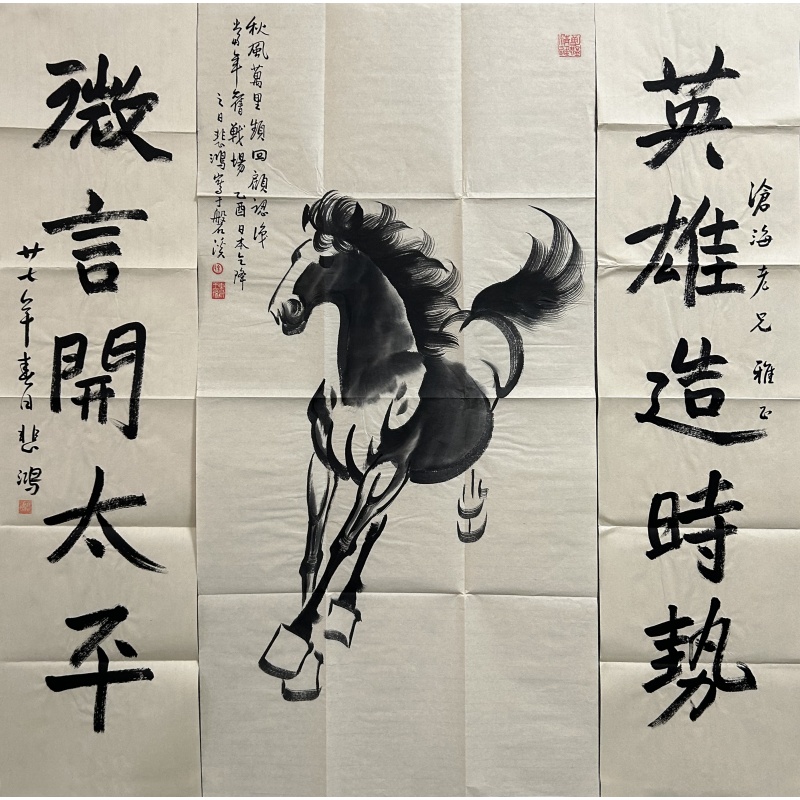 英雄造時勢
滄海老兄雅正
秋風萬里頻回顧認淂
當年舊戰場乙酉日本乞降
之日悲鴻寫于磐溪
微言開太平
廿七年春日悲鴻